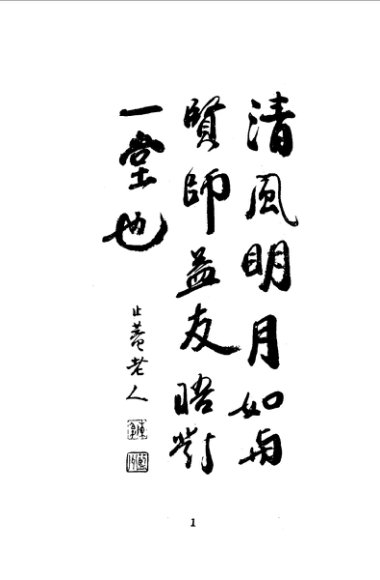 清風明月如與
賢師益友晤對
一堂也
止菴老人
1